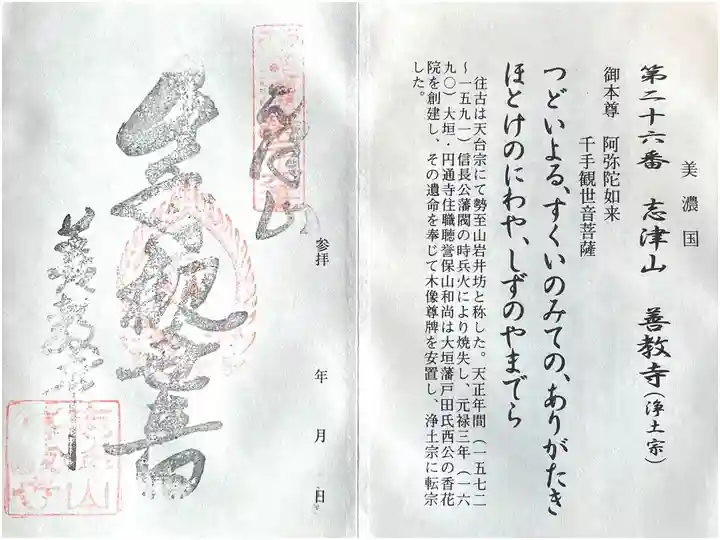 美濃国
第二十六番 志津山 善教寺(浄土宗)
御本尊 阿弥陀如来
千手観世音菩薩
つどいよる、すくいのみての、ありがたき
ほとけのにわや、しずのやまでら
往古は天台宗にて勢至山岩井坊と称した。天正年間(一五七二
〜一五九一)信長公藩閥の時兵火により焼失し、元禄三年(一六
九〇)大垣・円通寺住職聴誉保山和尚は大垣藩戸田氏西公の香花
院を創建し、その遺命を奉じて木像尊牌を安置し、浄土宗に転宗
した。
参拝 年 月 日
志津山
観世音
善教寺